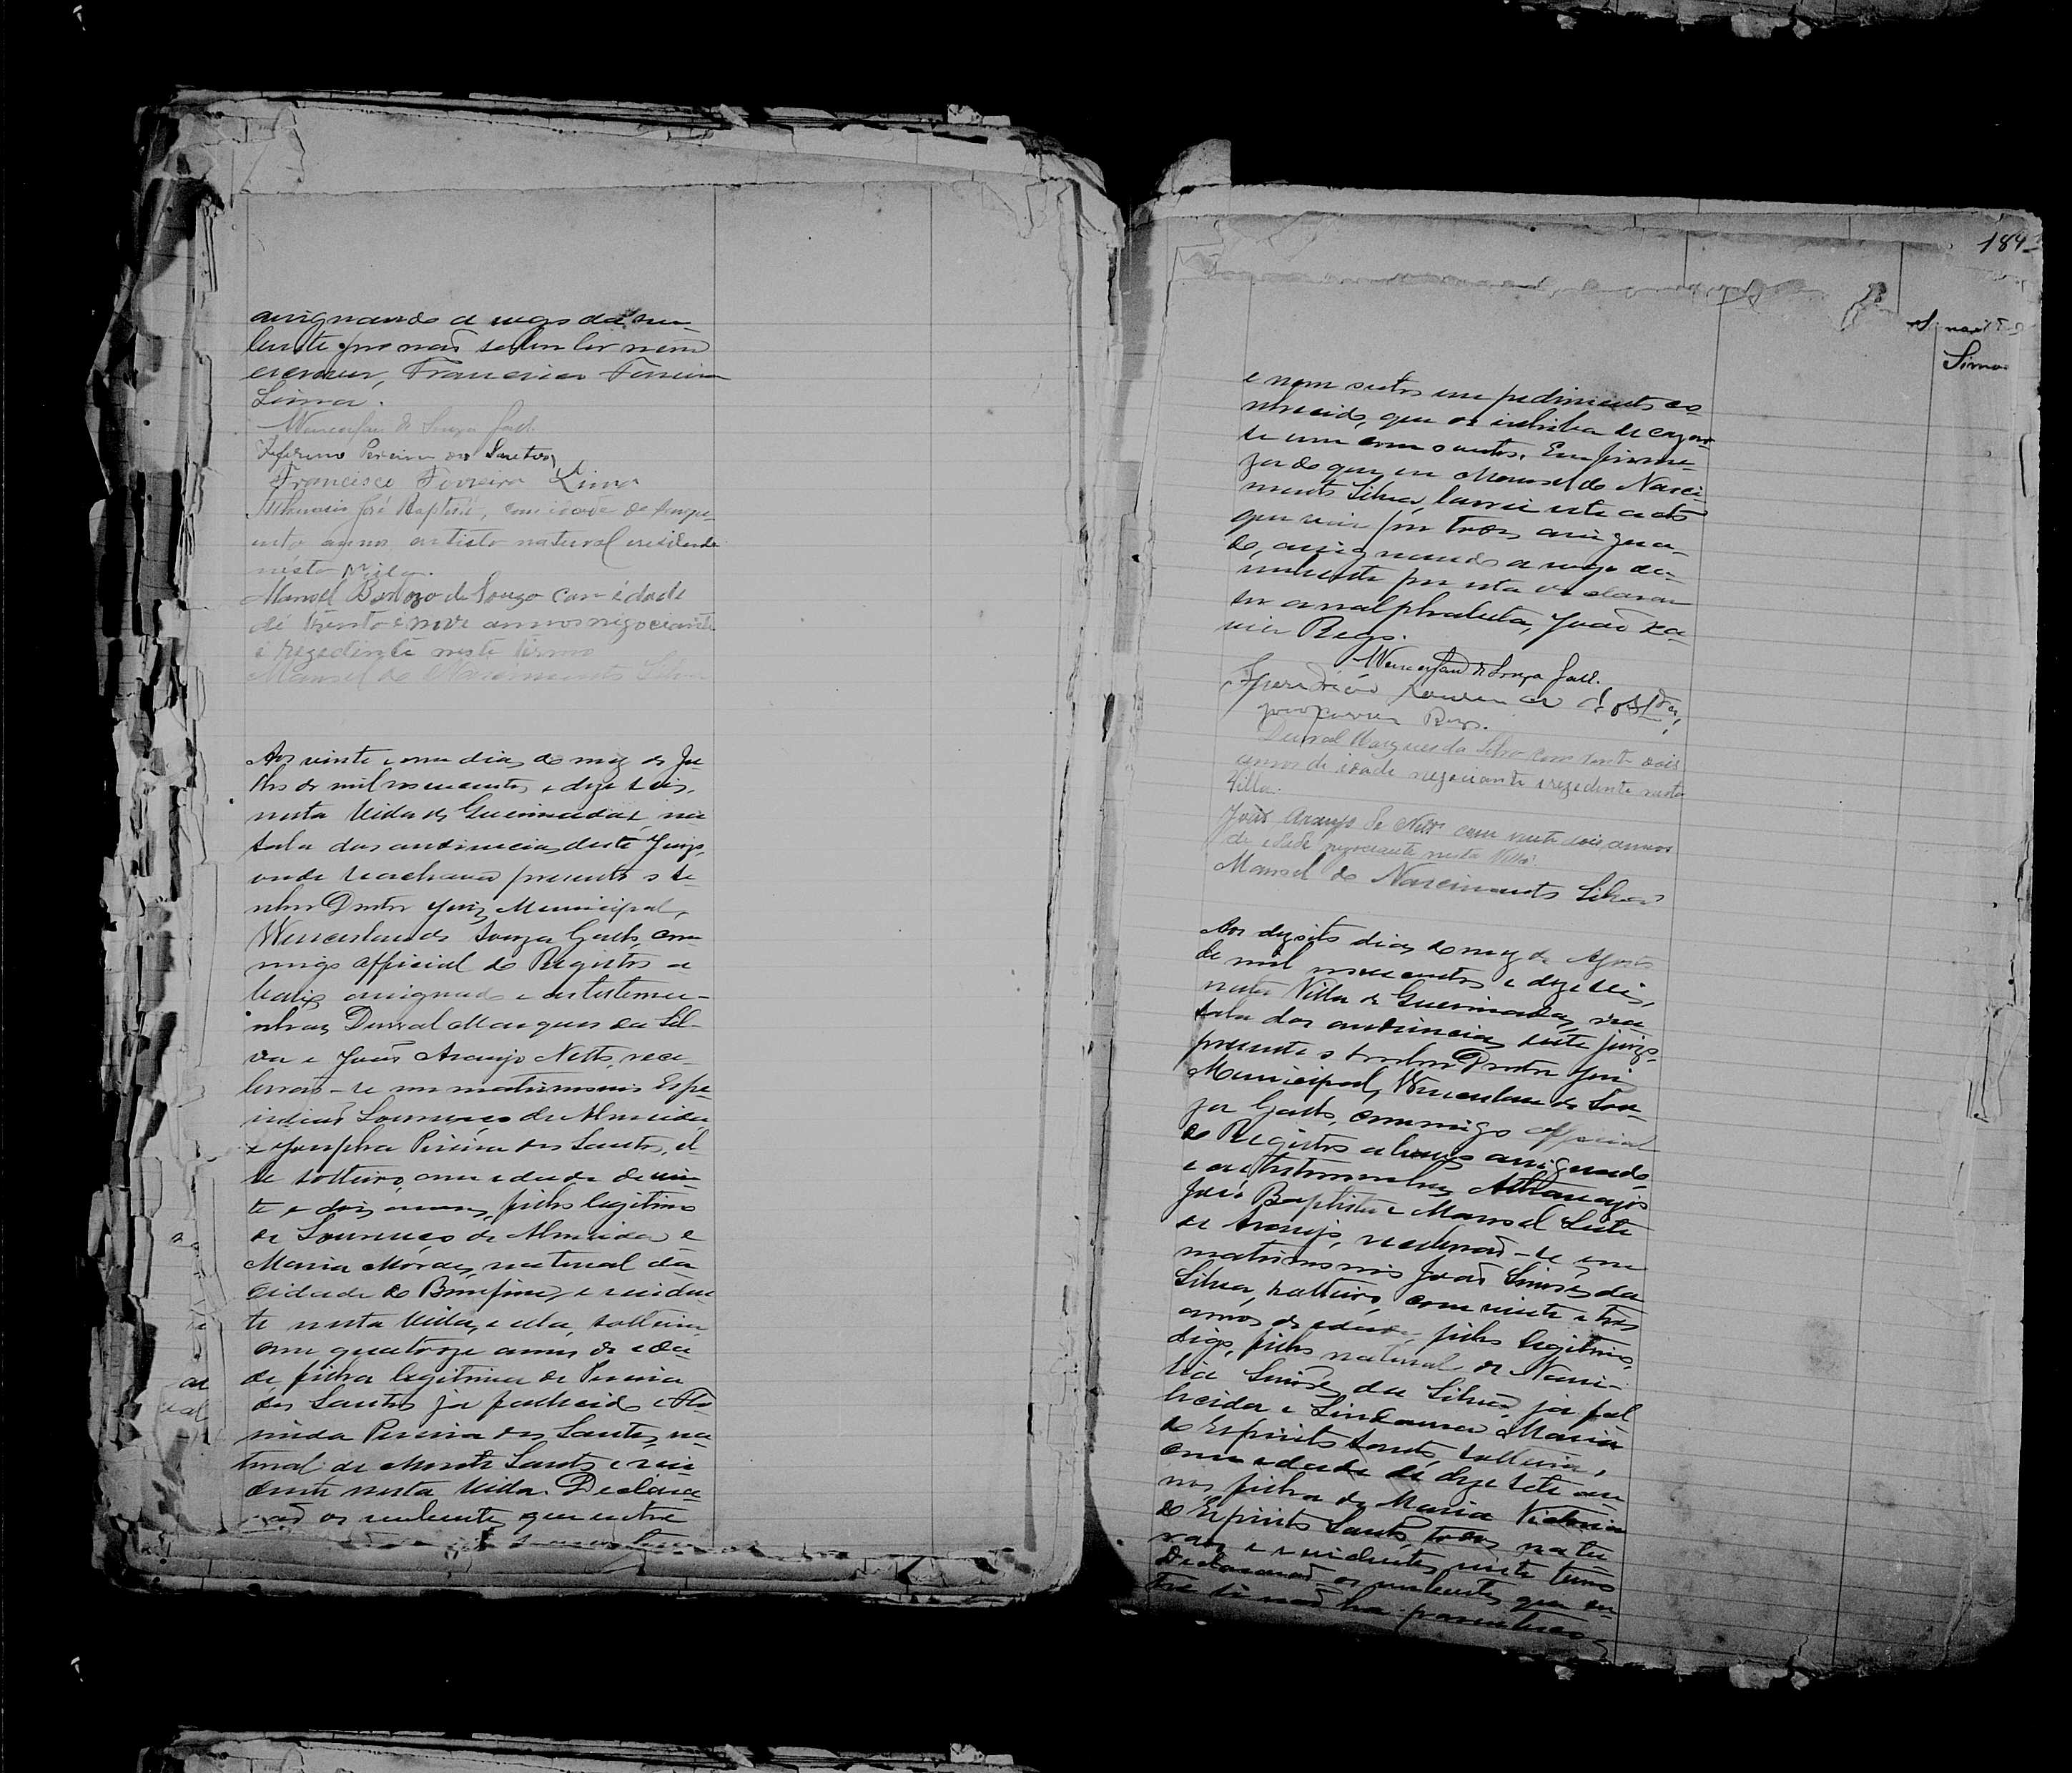 assignando a rogo da nu-
bente por não saber ler nem
escrever, Francisco Ferreira
Lima.
Wenceslau de Souza Gad.
Zeferino Pereira dos Santos,
Francisco Ferreira Lima
José Baptista, com idade de
annos artista natural e residente
nesta villa.
Manoel de Souza com edade
de trinta e nove annos negociante
e rezedente neste termo
Manoel do Nascimento Silva
Aos vinte e um dias do mez de Ju-
lho de mil novecentos e dezeseis,
nesta Villa de Queimadas, na
sala das audiencias deste Juizo,
onde se achava presente o se-
nhor Doutor Juiz Municipal,
Wenceslau de Souza Gads, com-
migo official do Registro a
baixo assignado e as testemu-
nhas Durval Marques da Sil-
va e João Araujo Netto, rece-
berão-se em matrimonio Espe-
ridião Lourenço de Almeida
e Josepha Pereira dos Santos, el-
le solteiro, com edade de vin-
te e dois annos, filho legitimo
de Lourenço de Almeida e
Maria Moraes, natural da
cidade do Bomfim, e residen-
te nesta Villa, e ella, solteira,
com quatorze annos de eda-
de, filha legitima de Pereira
dos Santos já fallecido e
Pereira dos Santos, na-
tural de Monte Santo e resi-
dente nesta Villa. Declara-
rão os nubentes que entre
184
Simo
e nem outro impedimento co
nhecido, que os inhiba de cazar-
se um com outro. Em firme-
za do que, eu Manoel do Nasci-
mento Silva, lavrei este acto
que vai por todos assigna-
do, assignando a rogo da
nubente por esta declarar
ser analphabeta, João Xa-
vier Rego.
Wenceslau de Souza Gad.
Esperidião Lourenço d'Almda,
João Xavier Rego.
Durval Marques da Silva com vinte dois
annos de idade negociante e rezedente nesta
Villa.
João Araujo Netto com vinte seis annos
de edade negociante nesta Villa.
Manoel do Nascimento Silva
Aos dezoito dias do mez de Agosto
de mil novecentos e dezeseis,
nesta Villa de Queimadas, na
sala das audiencias deste juizo,
presente o senhor Doutor Juiz
Municipal, Wenceslau de Sou-
za Gads, commigo official
do Registro abaixo assignado
e as testemunhas Athanazio
José Baptista e Manoel Leite
de Araujo, receberão-se em
matrimonio João Simões da
Silva, solteiro, com vinte e tres
annos de edade, filho legitimo,
digo, filho natural de
Simões da Silva, já fal
lecida e Lindaura Maria
do Espirito Santo, solteira,
com edade de dezesete an-
nos, filha de Maria Victoria
do Espirito Santo, todos natu
raes e residentes neste termo
Declararão os nubentes que en-
tre si não ha parentesco